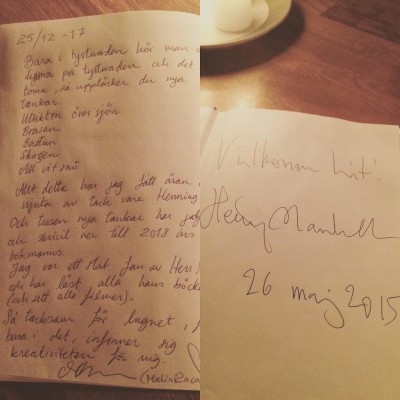 25/12 -17
Bara i tystnaden hör man
på tystnaden och det
tomma, så upptäcker du nya
tankar.
Utsikten över sjön
Brasan
Bastun
Skogen
Allt detta har jag fått äran
njuta av tack vare Henning
Och tusen nya tankar har jag
och skrivit ner till 2018 års
bokmanus.
Jag var ett stort fan av Herr
och har läst alla hans böck
(och sett alla filmer).
Så tacksam för lugnet,
bara i det, infinner sig
kreativiteten för mig.
(Malin
Välkomna hit!
Henning Mankell
26 maj 2015